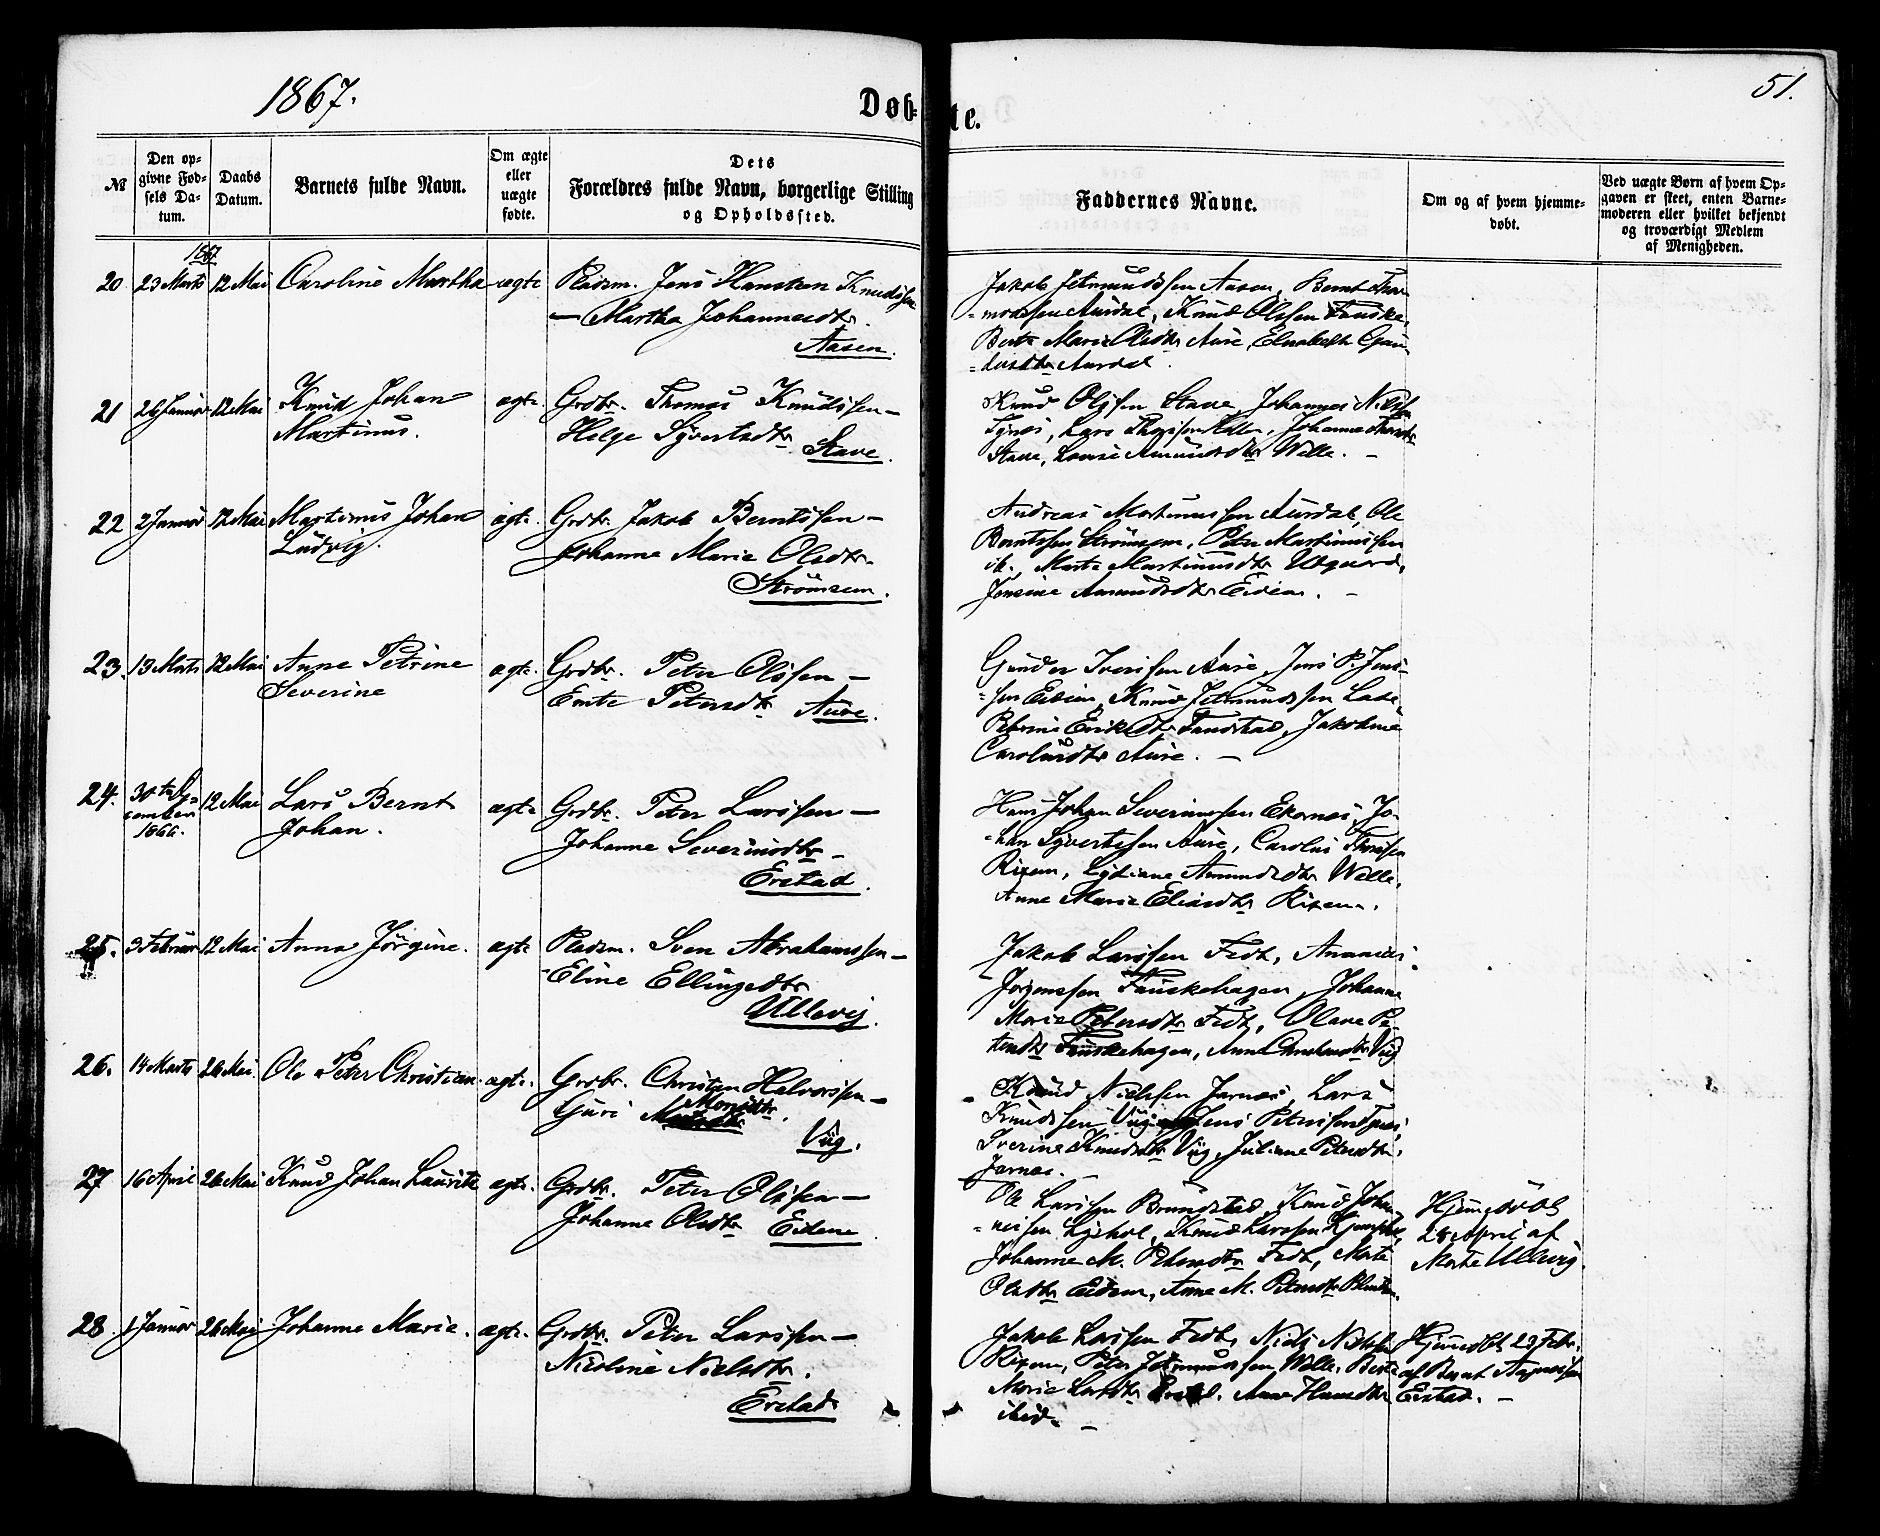 1867.
Døb-
te.
51.
№
Den op-
givne Fød-
sels Da-
tum.
Daabs
Datum.
Barnets fulde Navn.
Om ægte
eller
uægte
fødte.
Dets
Forældres fulde Navn, borgerlige Stilling
og Opholdssted.
Faddernes Navne.
Om og af hvem hjemme-
døbt.
Ved uægte Børn af hvem Op-
gaven er skeet, enten Barne-
moderen eller hvilket bekjendt
og troværdigt Medlem
af Menigheden.
1867
20 23 Marts 12 Mai Caroline Martha ægte Pladsm. Jens Hansten Knudssen
— Martha Johannesdtr.
Aasen.
Jakob Jetmundssen Aasen, Bernt
Aurdal, Knud Olssen Fauske,
Berte Marie Olsdtr Aure, Elisabeth
Aurdal.
21 Januar 12 Mai Knud Johan ægte Grdbr. Thomas Knudssen —
Martinus.
Helge Syvertsdtr. Stave.
Knud Olssen Stave, Johannes
Lars Johanne
Stave, Amundsdtr Welle. —
22 2 Januar 12 Mai Martinus Johan ægte. Grdbr. Jakob Berntssen —
Ludvig.
Johanne Marie Olsdtr.
Strømsem.
Andreas Martinussen Aurdal, Ole
Berntssen Strømsem, Peter Martinussen
ib., Marte Martinusdtr Utgaard,
Jensine Amundsdtr Eidem. —
23. 13 Marts 12 Mai Anne Petrine ægte. Grdbr. Peter Olssen —
Severine
Emte Petersdtr Aure.
Gunder Iverssen Aure, Jens P. Jens-
=sen Eidem, Knud Jetmundssen Lade,
Petrine Eriksdtr Tandstad, Jakobine
Carolusdtr Aure. —
24. 30te De-
cember
1866.
12 Mai Lars Bernt ægte Grdbr. Peter Larssen —
Johan.
Johanne Severinsdtr —
Erstad.
Hans Johan Severinussen Ekornes, Jo-
=han Syvertssen Aure, Carolus
Amundsdtr Welle,
Anne Marie Eliasdtr
25. Februar 12 Mai Anna Jörgine. ægte Pladsm. Sven Abrahamssen —
Eline Ellingsdtr
Ullavig.
Jakob Larssen Fedt, Ananias
Jörgenssen Fauskehagen, Johanne
Marie Petersdtr Fedt, Olave Pe-
Fauskehagen, Anne Viig
26. 14 Marts 26 Mai. Ole Peter Christian. ægte. Grdbr. Christen Halvorssen —
Guri Monsdtr.
Viig.
Knud Nielssen Jarnes, Lars
Knudssen Viig, Jens Peterssen
Severine Knudsdtr Viig, Juliane Petersdtr,
Jarnes.
27 16 April 26 Mai Knud Johan Lauritz ægte. Grdbr. Peter Olssen —
Johanne Olsdtr Eidem.
Ole Larssen Brundstad, Knud Johan-
=nessen Lyshol, Knud Larssen
Johanne M. Petersdtr Fedt, Marte
Olsdtr Eidem, Anne M. Petersdtr
Hjemedöbt
28 April af
Marte Ullavig.
28. 1 Januar 26 Mai Johanne Marie. ægte. Grdbr. Peter Larssen —
Nicoline Nielsdtr.
Erstad.
Jakob Larssen Fedt, Niels Nielssen
Peter Jetmundssen Welle. Berte
Marie Larsdtr Erstad. Anne Hansdtr
ibid. —
Hjemedöbt 23 Febr.
af Bernt
Erstad. —